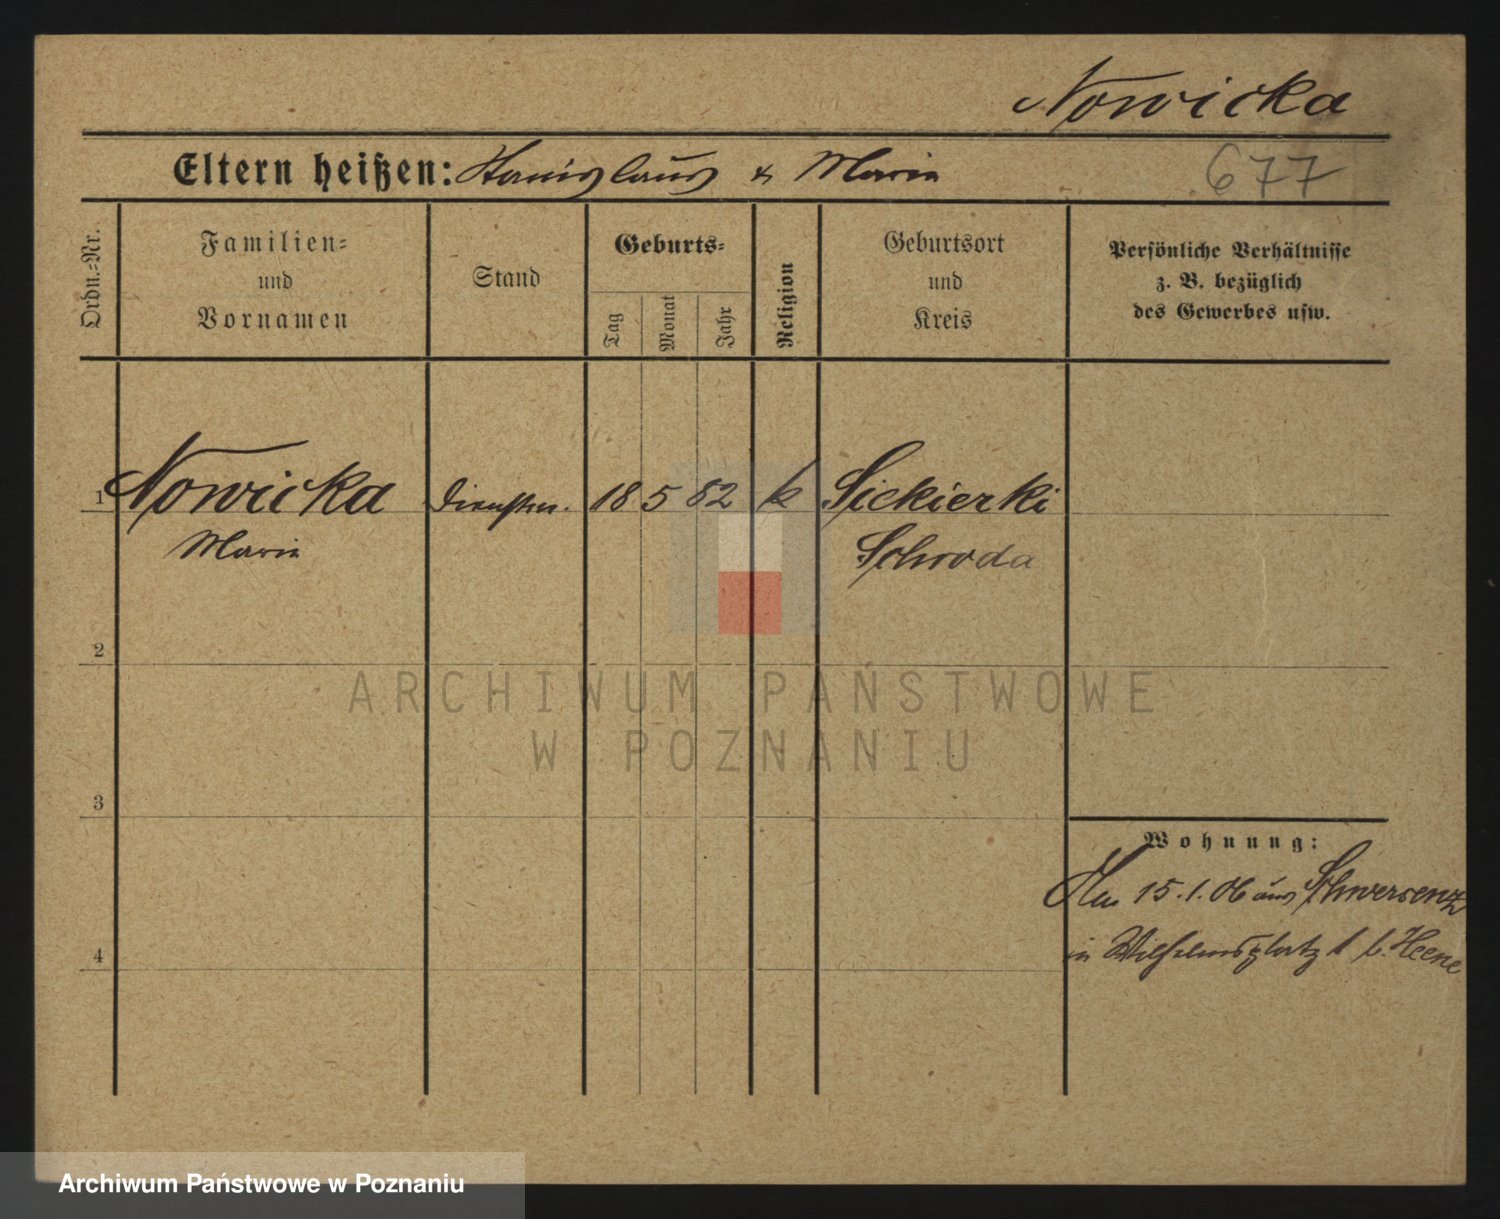 Nowicka
Eltern heißen: Stanislaus & Marie
677
Ordn.=Nr.
Familien=
und
Vornamen
Stand
Geburts=
Tag
Monat
Jahr
Religion
Geburtsort
und
Kreis
Persönliche Verhältnisse
z. B. bezüglich
des Gewerbes usw.
1 Nowicka Dienstm. 18 5 82 k Siekierki
Marie Schroda
2
ARCHIWUM PAŃSTWOWE
W POZNANIU
3
Wohnung:
15.1.06 aus Schwersenz
4
in Wilhelmsplatz 1 b. Heene
Archiwum Państwowe w Poznaniu